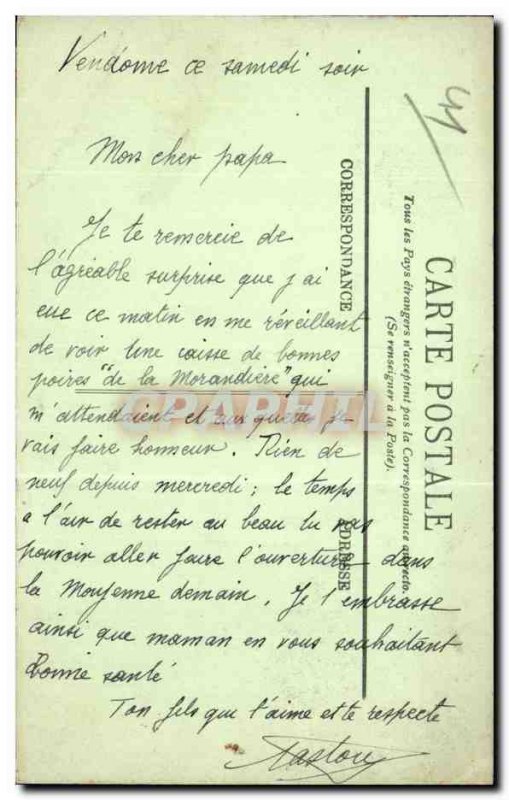 Vendôme ce samedi soir
Mon cher papa
Je te remercie de
l'agréable surprise que j'ai
eue ce matin en me réveillant
de voir une caisse de bonnes
poires "de la Morandière" qui
m'attendaient et auxquelles je
vais faire honneur. Rien de
neuf depuis mercredi ; le temps
a l'air de rester au beau tu vas
pouvoir aller faire l'ouverture dans
la Mayenne demain. Je t'embrasse
ainsi que maman en vous souhaitant
bonne santé
Ton fils qui t'aime et te respecte
Gaston
CORRESPONDANCE
ADRESSE
CARTE POSTALE
Tous les Pays étrangers n'acceptent pas la Correspondance au recto.
(Se renseigner à la Poste).